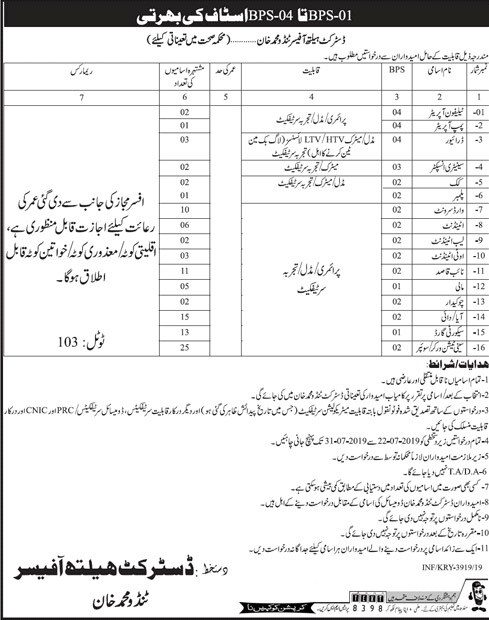 BPS-01 تا BPS-04 اسٹاف کی بھرتی
ڈسٹرکٹ ہیلتھ آفیسر ٹنڈو محمد خان..........(محکمہ صحت میں تعیناتی کیلئے)
مندرجہ ذیل قابلیت کے حامل امیدواران سے درخواستیں مطلوب ہیں۔
نمبر شمار نام اسامی BPS قابلیت عمر کی حد مشتہر اسامیوں کی تعداد ریمارکس
1 2 3 4 5 6 7
-01 ٹیلیفون آپریٹر 04 پرائمری/مڈل/تجربہ سرٹیفکیٹ 02
-2 پمپ آپریٹر 04 01
-3 ڈرائیور 04 مڈل/میٹرک LTV/HTV لائسنس (لاگ بک مین ٹین کرنے کا اہل) تجربہ سرٹیفکیٹ 03
-4 سینیٹری انسپکٹر 03 میٹرک/تجربہ سرٹیفکیٹ 02
-5 کک 02 مڈل/تجربہ سرٹیفکیٹ 02
-6 پلمبر 02 پرائمری/مڈل/تجربہ سرٹیفکیٹ 01
-7 وارڈ سرونٹ 02 10
-8 اٹینڈنٹ 02 06
-9 لیب اٹینڈنٹ 02 02
-10 اوٹی اٹینڈنٹ 02 03
-11 نائب قاصد 02 11
-12 مالی 01 05
-13 چوکیدار 02 12
-14 آیا/دائی 02 15
-15 سیکورٹی گارڈ 01 13
-16 سینیٹیشن ورکر/سوئپر 02 25
افسر مجاز کی جانب سے دی گئی عمر کی
رعائت کیلئے اجازت قابل منظوری ہے،
اقلیتی کوٹہ/معذوری کوٹہ/خواتین کوٹہ قابل
اطلاق ہوگا۔
ٹوٹل: 103
ہدایات/شرائط:
1-تمام اسامیاں ناقابل منتقلی اور عارضی ہیں۔
2-انتخاب کے بعد/اسامی پر تقرر پر کامیاب امیدواران کی تعیناتی ڈسٹرکٹ ٹنڈو محمد خان میں کی جائے گی۔
3-درخواستوں کے ساتھ تصدیق شدہ فوٹو نقول بابتہ قابلیت میٹریکولیشن سرٹیفکیٹ (جس میں تاریخ پیدائش ظاہر کی گئی ہو) اور دیگر درکار قابلیت سرٹیفکیٹس، ڈومیسائل سرٹیفکیٹس/PRC اور CNIC اور درکار
قابلیت منسلک کی جائیں۔
4-تمام درخواستیں زیر دستخطی کو 22-07-2019 سے 31-07-2019 تک پہنچ جانی چاہئیں۔
5-زیر ملازمت امیدواران لازماً محکمانہ توسط سے درخواست دیں۔
6-T.A/D.A نہیں دیا جائے گا۔
7-کسی بھی صورت میں اسامیوں کی تعداد میں دستیابی کے مطابق کمی بیشی ہوسکتی ہے۔
8-امیدواران ڈسٹرکٹ ٹنڈو محمد خان ڈومیسائل کی اسامی کے مقابل درخواست دینے کے اہل ہیں۔
9-نامکمل درخواستوں پر توجہ نہیں دی جائے گی۔
10-مقررہ تاریخ کے بعد درخواستوں پر توجہ نہیں دی جائے گی۔
11-ایک سے زائد اسامی پر درخواست دینے والے امیدواران ہر اسامی کیلئے جداگانہ درخواست دیں۔
INF/KRY-3919/19
دستخط: ڈسٹرکٹ ہیلتھ آفیسر
ٹنڈو محمد خان
8398
کرپشن کو کہیں نا